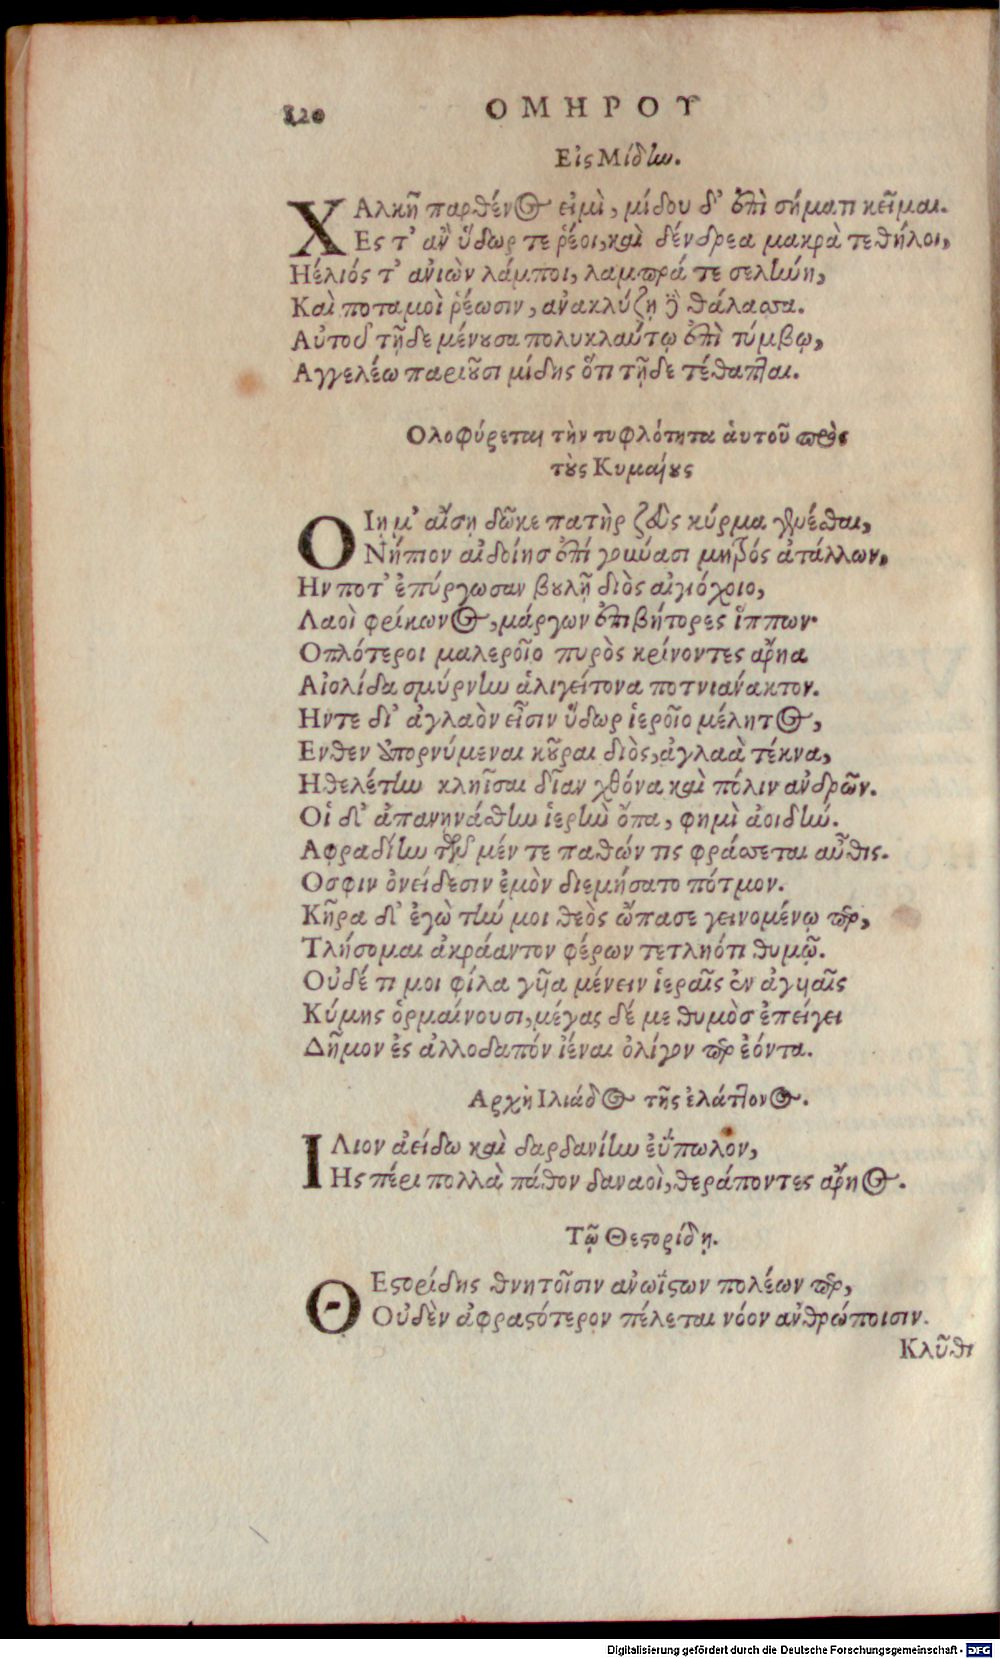 320 ΟΜΗΡΟΥ
Εἰς Μίδην.
ΧΑλκῆ παρθένος εἰμὶ, μίδου δ' ἐπὶ σήματι κεῖμαι.
Ες τ' ἂν ὕδωρ τε ῥέοι, καὶ δένδρεα μακρὰ τεθήλοι,
Ηέλιός τ' ἀνιὼν λάμποι, λαμπρά τε σελήνη,
Καὶ ποταμοὶ ῥέωσιν, ἀνακλύζῃ δὲ θάλασσα.
Αὐτοῦ τῇδε μένουσα πολυκλαύτῳ ἐπὶ τύμβῳ,
Αγγελέω παριοῦσι μίδης ὅτι τῇδε τέθαπται.
Ολοφύρεται τὴν τυφλότητα ἁυτοῦ πρὸς
τοὺς Κυμαίους
ΟΙῃ μ' αἴσῃ δῶκε πατὴρ ζεὺς κύρμα γενέσθαι,
Νήπιον αἰδοίησ ἐπί γούνασι μητρός ἀτάλλων,
Ην ποτ' ἐπύργωσαν βουλῇ διὸς αἰγιόχοιο,
Λαοὶ φρίκωνος, μάργων ἐπιβήτορες ἵππων·
Οπλότεροι μαλεροῖο πυρὸς κρίνοντες ἄρηα
Αἰολίδα σμύρνην ἁλιγείτονα ποτνιάνακτον.
Ηντε δι' ἀγλαὸν εἶσιν ὕδωρ ἱεροῖο μέλητος,
Ενθεν ἀπορνύμεναι κοῦραι διὸς, ἀγλαὰ τέκνα,
Ηθελέτην κληῖσαι δῖαν χθόνα καὶ πόλιν ἀνδρῶν.
Οἱ δ' ἀπανηνάσθην ἱερὴν ὄπα, φημὶ ἀοιδήν.
Αφραδίην τῶν μέν τε παθών τις φράσσεται αὖθις.
Οσφιν ὀνείδεσιν ἐμὸν διεμήσατο πότμον.
Κῆρα δ' ἐγὼ τήν μοι θεὸς ὤπασε γεινομένῳ περ,
Τλήσομαι ἀκράαντον φέρων τετληότι θυμῷ.
Οὐδέ τι μοι φίλα γυῖα μένειν ἱεραῖς ἐν ἀγυιαῖς
Κύμης ὁρμαίνουσι, μέγας δέ με θυμὸσ ἐπείγει
Δῆμον ἐς ἀλλοδαπόν ἰέναι ὀλίγον περ ἐόντα.
Αρχὴ Ιλιάδος τῆς ἐλάττονος.
ΙΛιον ἀείδω καὶ δαρδανίην ἐΰπωλον,
Ης πέρι πολλὰ πάθον δαναοὶ, θεράποντες ἄρηος.
Τῷ Θεστορίδῃ.
ΘΕστορίδης θνητοῖσιν ἀνωΐστων πολέων περ,
Οὐδὲν ἀφραστότερον πέλεται νόον ἀνθρώποισιν.
Κλῦθι
Digitalisierung gefördert durch die Deutsche Forschungsgemeinschaft - DFG